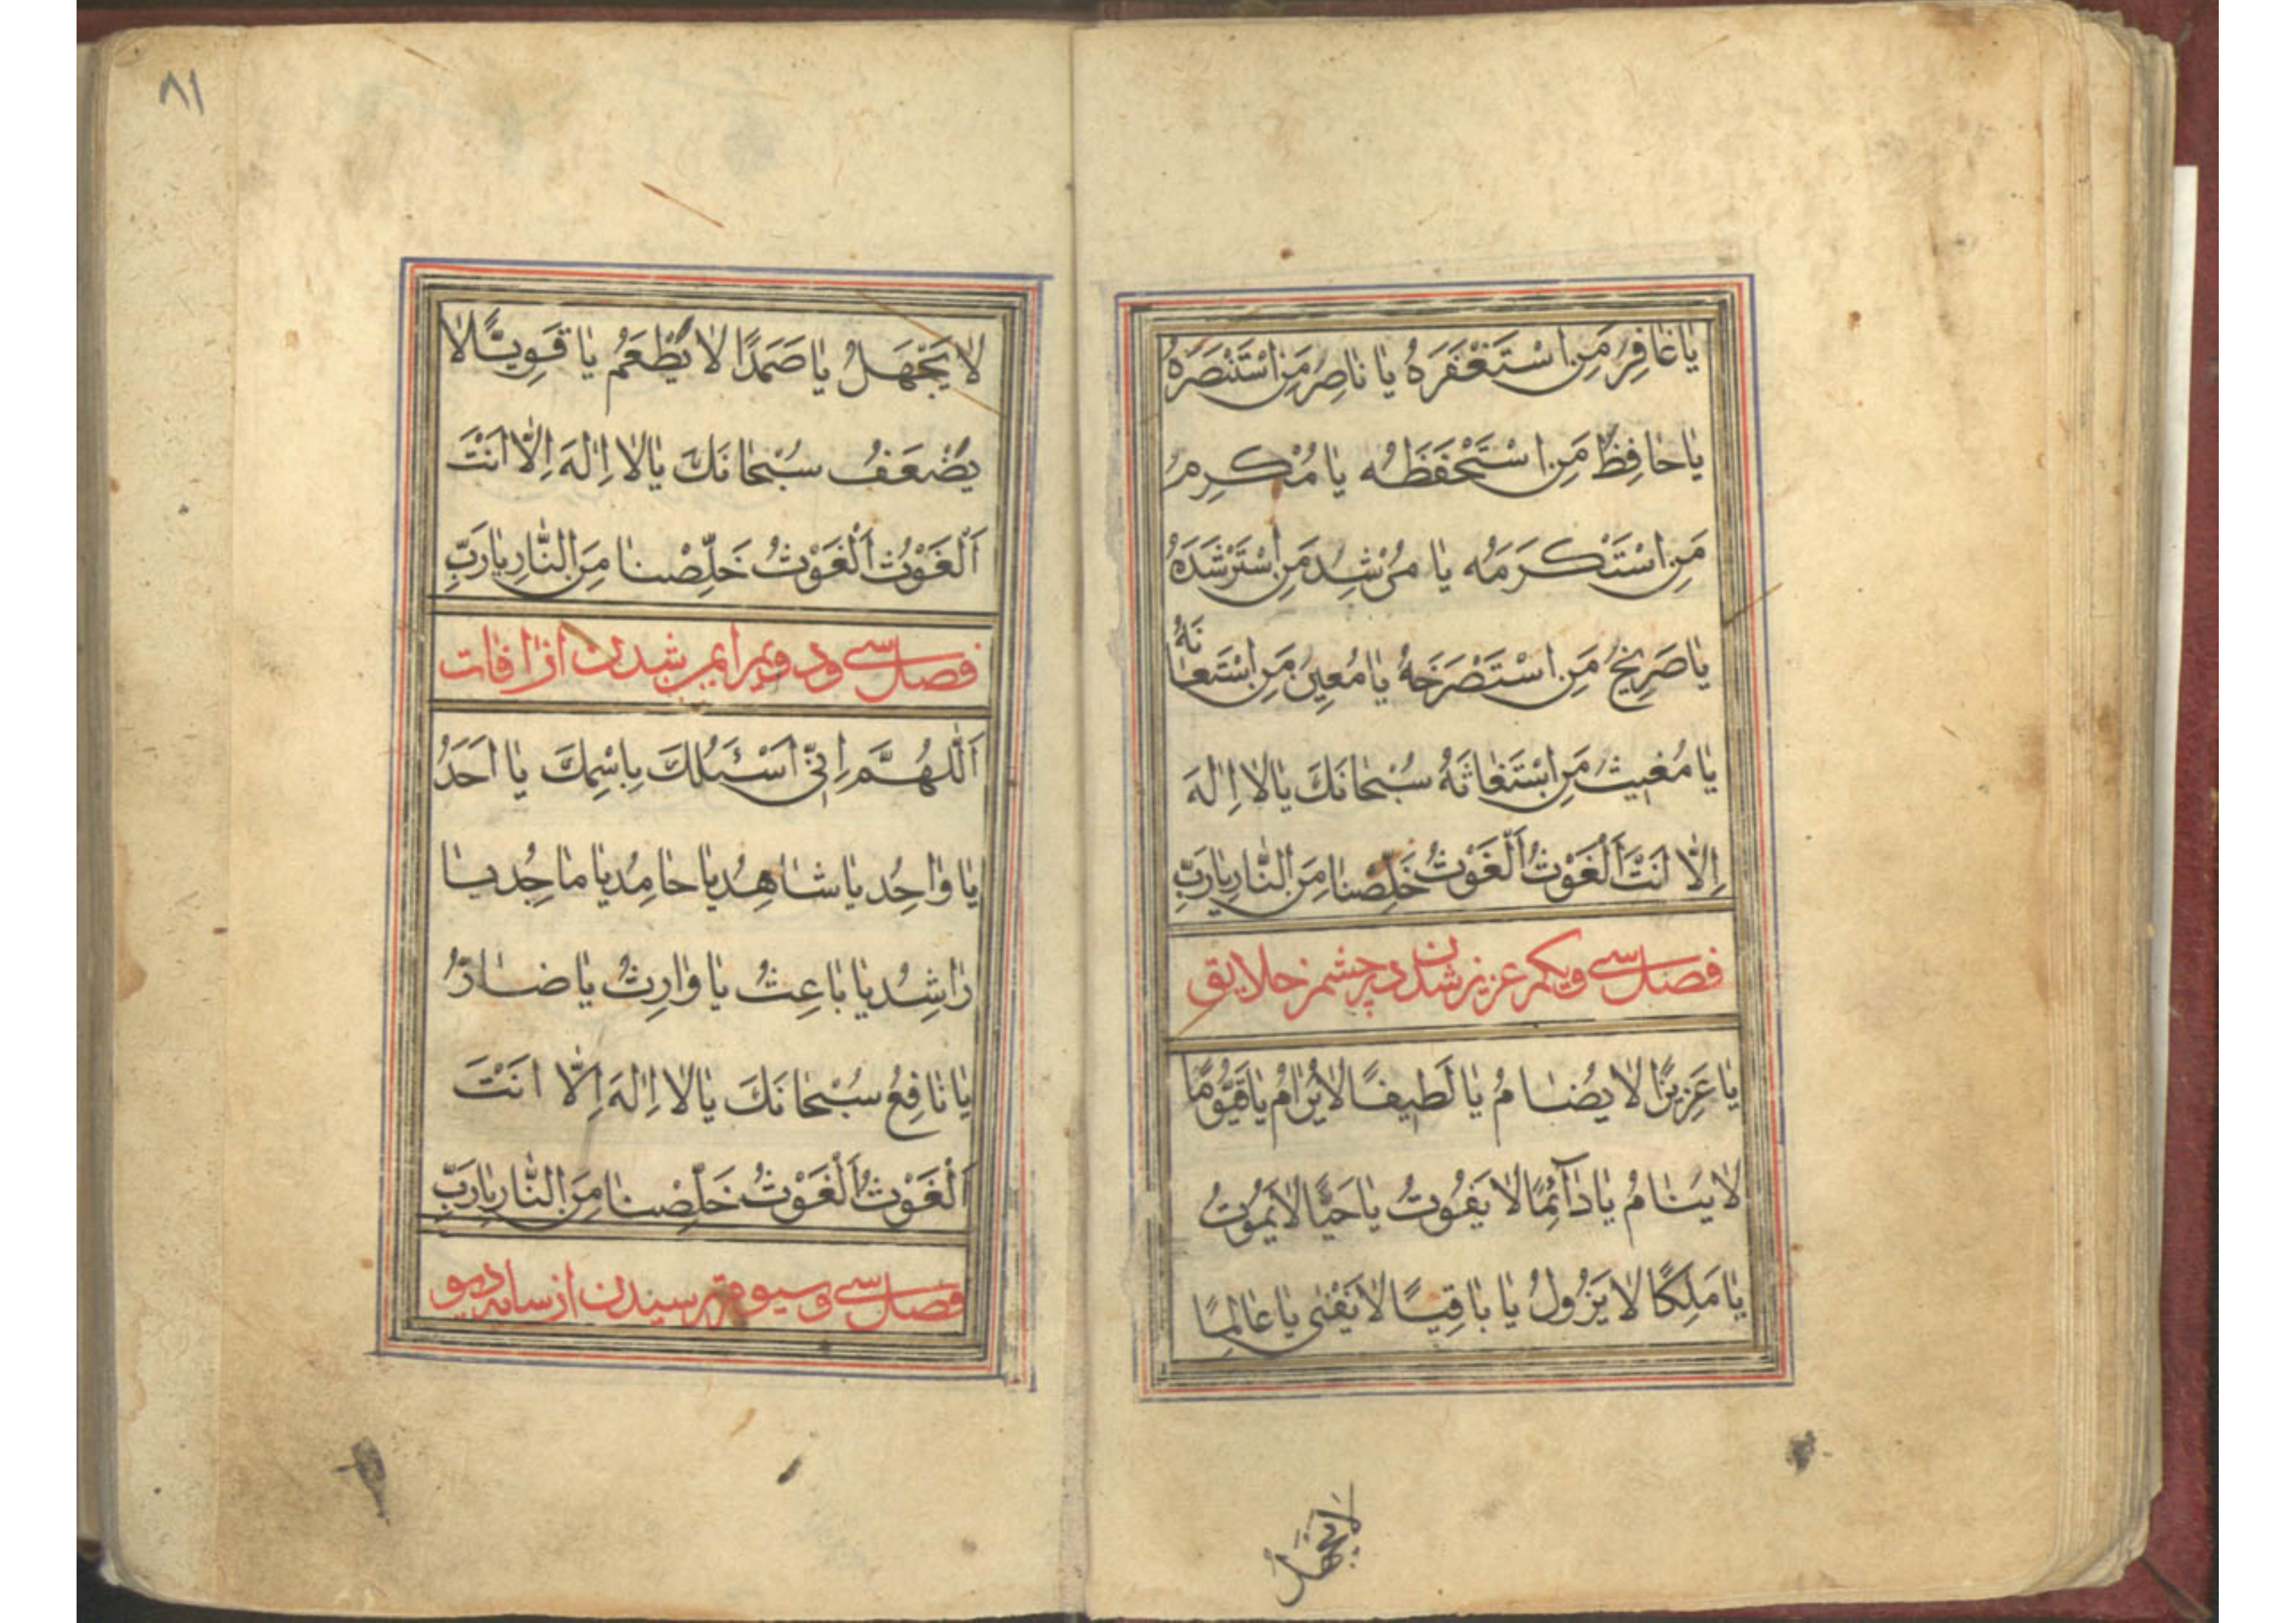 يَا غَافِرُ مَنِ اسْتَغْفَرَهُ يَا نَاصِرُ مَنِ اسْتَنْصَرَهُ
يَا حَافِظُ مَنِ اسْتَحْفَظَهُ يَا مُكْرِمُ
مَنِ اسْتَكْرَمَهُ يَا مُرْشِدَ مَنِ اسْتَرْشَدَهُ
يَا صَرِيخُ مَنِ اسْتَصْرَخَهُ يَا مُعِينُ مَنِ اسْتَعَانَهُ
يَا مُغِيثُ مَنِ اسْتَغَاثَهُ سُبْحَانَكَ يَا لَا اِلٰهَ
اِلَّا اَنْتَ اَلْغَوْثُ اَلْغَوْثُ خَلِّصْنَا مِنَ النَّارِ يَا رَبِّ
فصل سی ویکم عزیز شدن در چشم خلایق
يَا عَزِيزًا لَا يُضَامُ يَا لَطِيفًا لَا يُرَامُ يَا قَيُّومًا
لَا يَنَامُ يَا دَآئِمًا لَا يَفُوتُ يَا حَيًّا لَا يَمُوتُ
يَا مَلِكًا لَا يَزُولُ يَا بَاقِيًا لَا يَفْنٰى يَا عَالِمًا
لَا يَجْهَلُ
٨١
لَا يَجْهَلُ يَا صَمَدًا لَا يُطْعَمُ يَا قَوِيًّا لَا
يَضْعَفُ سُبْحَانَكَ يَا لَا اِلٰهَ اِلَّا اَنْتَ
اَلْغَوْثُ اَلْغَوْثُ خَلِّصْنَا مِنَ النَّارِ يَا رَبِّ
فصل سی ودویم ایمن شدن از آفات
اَللّٰهُمَّ اِنِّي اَسْئَلُكَ بِاسْمِكَ يَا اَحَدُ
يَا وَاحِدُ يَا شَاهِدُ يَا حَامِدُ يَا مَاجِدُ يَا
رَاشِدُ يَا بَاعِثُ يَا وَارِثُ يَا ضَارُّ
يَا نَافِعُ سُبْحَانَكَ يَا لَا اِلٰهَ اِلَّا اَنْتَ
اَلْغَوْثُ اَلْغَوْثُ خَلِّصْنَا مِنَ النَّارِ يَا رَبِّ
فصل سی وسیوم از سایه دیو